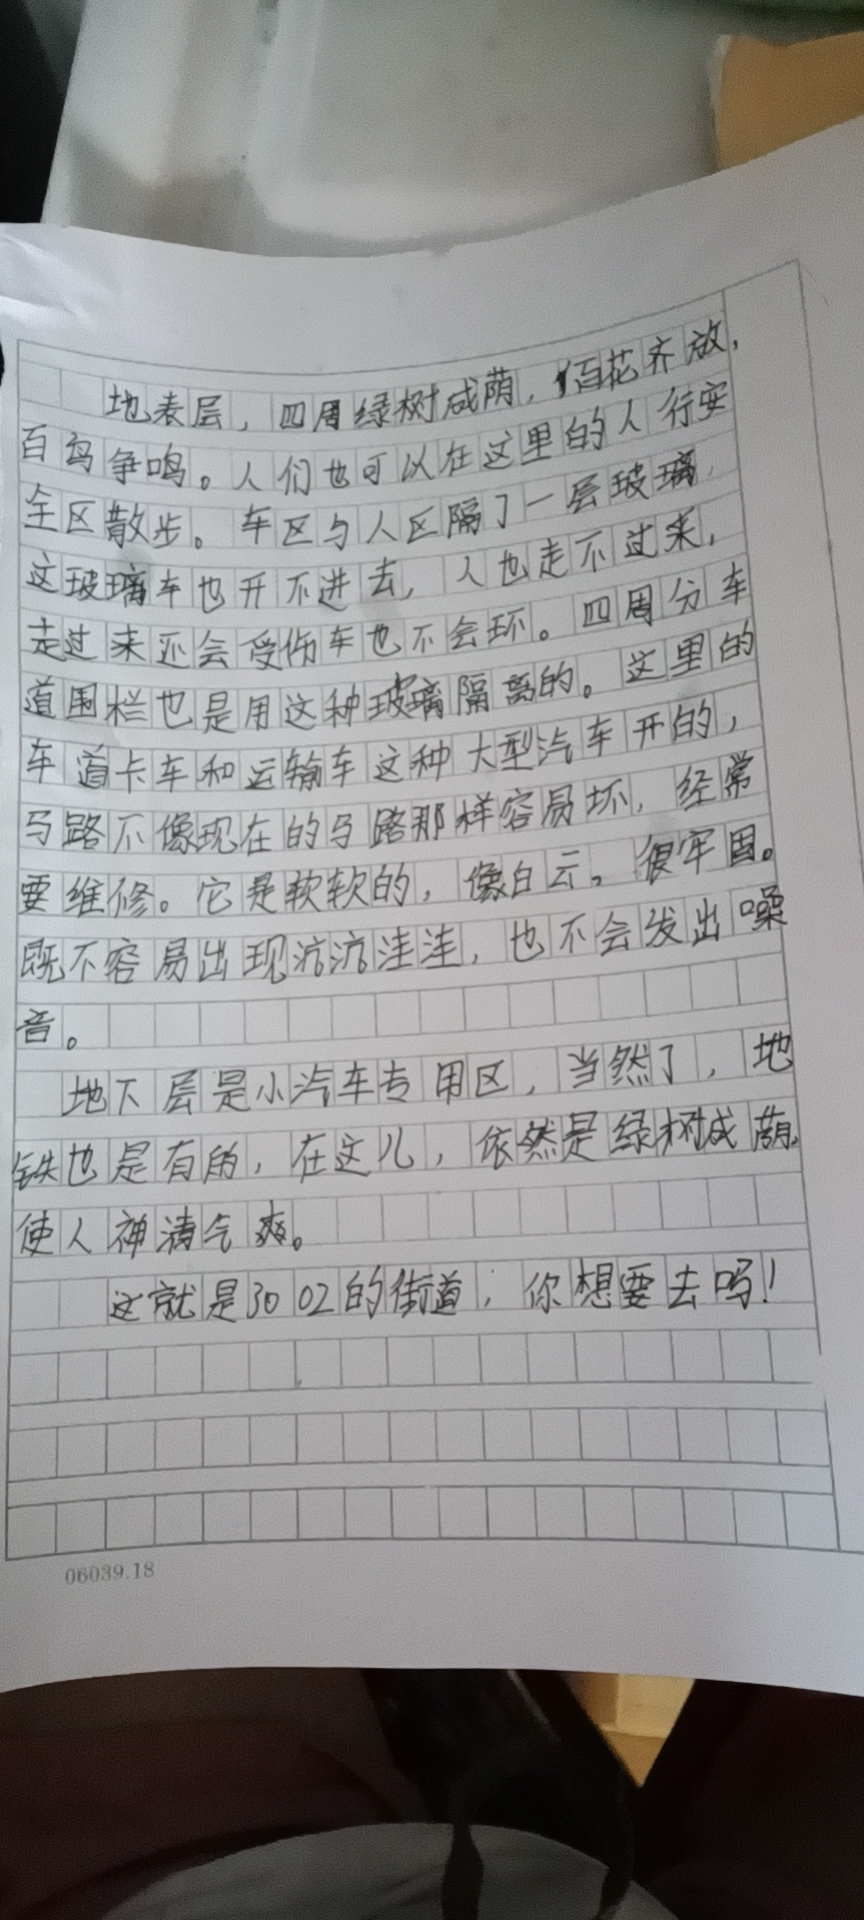 地表层，四周绿树成荫，百花齐放，
百鸟争鸣。人们也可以在这里的人行安
全区散步。车区与人区隔了一层玻璃，
这玻璃车也开不进去，人也走不过来，
走过来还会受伤车也不会环。四周分车
道围栏也是用这种玻璃隔离的。这里的
车道卡车和运输车这种大型汽车开的，
马路不像现在的马路那样容易坏，经常
要维修。它是软软的，像白云。很牢固。
既不容易出现坑坑洼洼，也不会发出噪
音。
地下层是小汽车专用区，当然了，地
铁也是有的，在这儿，依然是绿树成荫，
使人神清气爽。
这就是3002的街道，你想要去吗！
06039.18